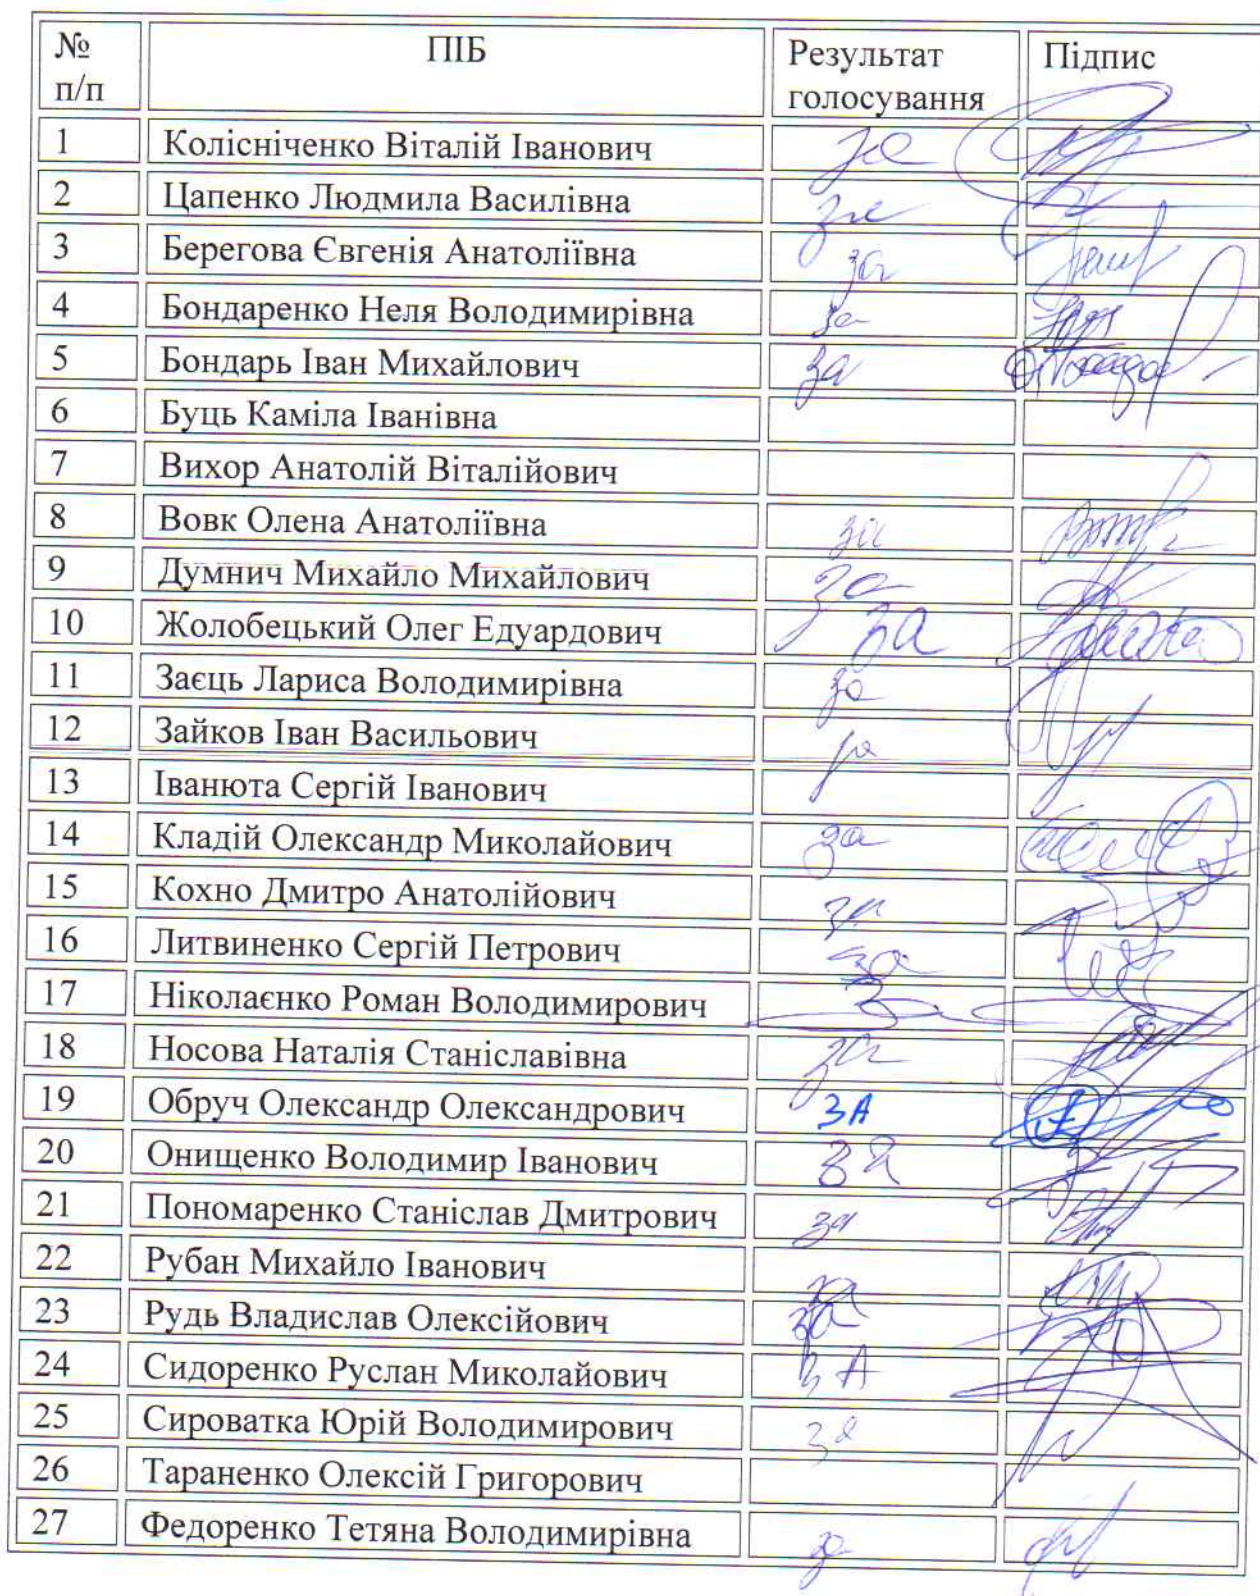 № ПІБ Результат Підпис
п/п голосування
1 Колісніченко Віталій Іванович за
2 Цапенко Людмила Василівна за
3 Берегова Євгенія Анатоліївна за
4 Бондаренко Неля Володимирівна за
5 Бондарь Іван Михайлович за
6 Буць Каміла Іванівна
7 Вихор Анатолій Віталійович
8 Вовк Олена Анатоліївна за
9 Думнич Михайло Михайлович за
10 Жолобецький Олег Едуардович за
11 Заєць Лариса Володимирівна за
12 Зайков Іван Васильович за
13 Іванюта Сергій Іванович
14 Кладій Олександр Миколайович за
15 Кохно Дмитро Анатолійович за
16 Литвиненко Сергій Петрович за
17 Ніколаєнко Роман Володимирович
18 Носова Наталія Станіславівна за
19 Обруч Олександр Олександрович ЗА
20 Онищенко Володимир Іванович за
21 Пономаренко Станіслав Дмитрович за
22 Рубан Михайло Іванович за
23 Рудь Владислав Олексійович за
24 Сидоренко Руслан Миколайович ЗА
25 Сироватка Юрій Володимирович за
26 Тараненко Олексій Григорович
27 Федоренко Тетяна Володимирівна за